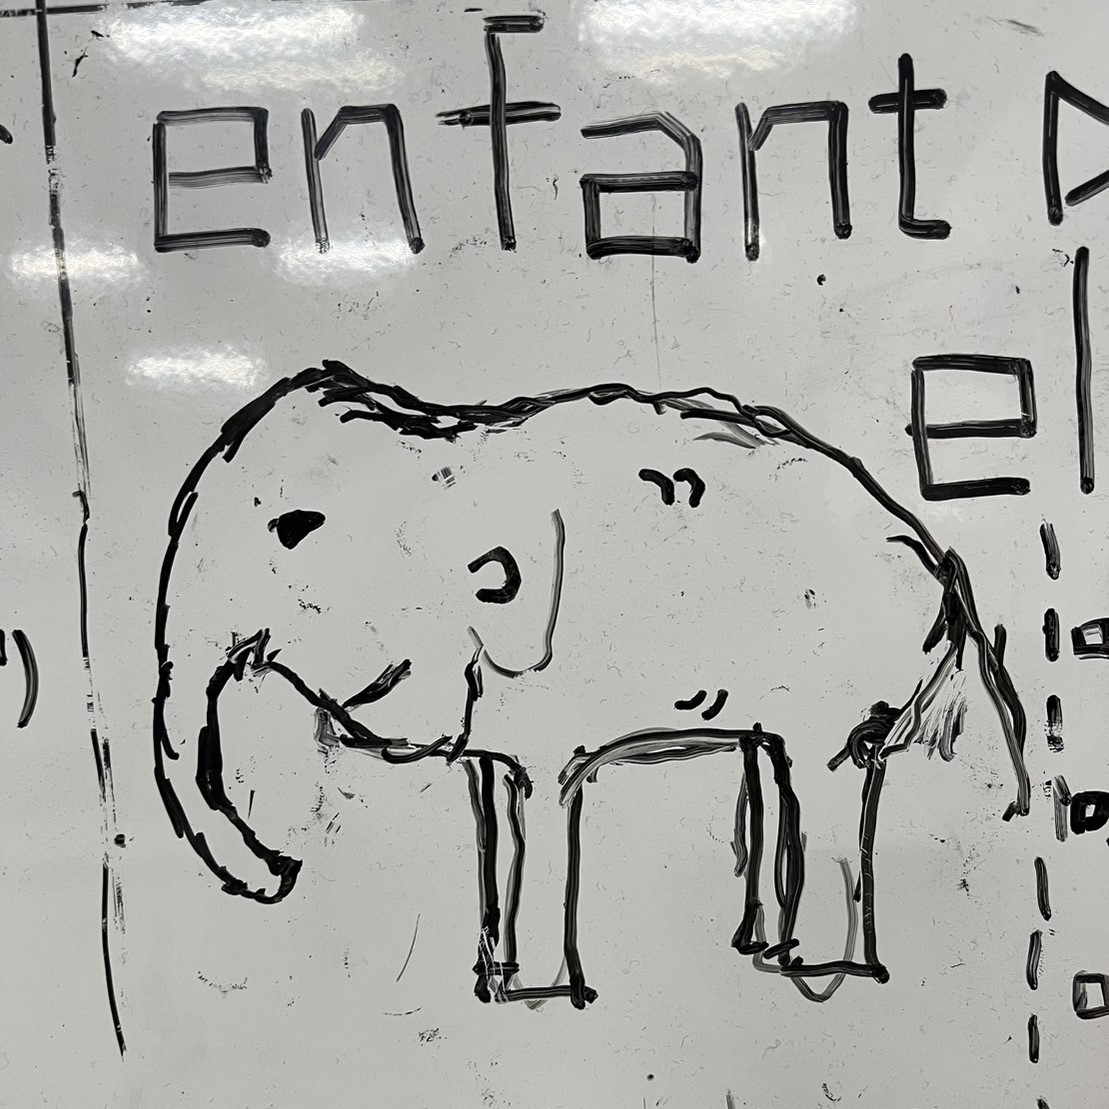 enfant
el